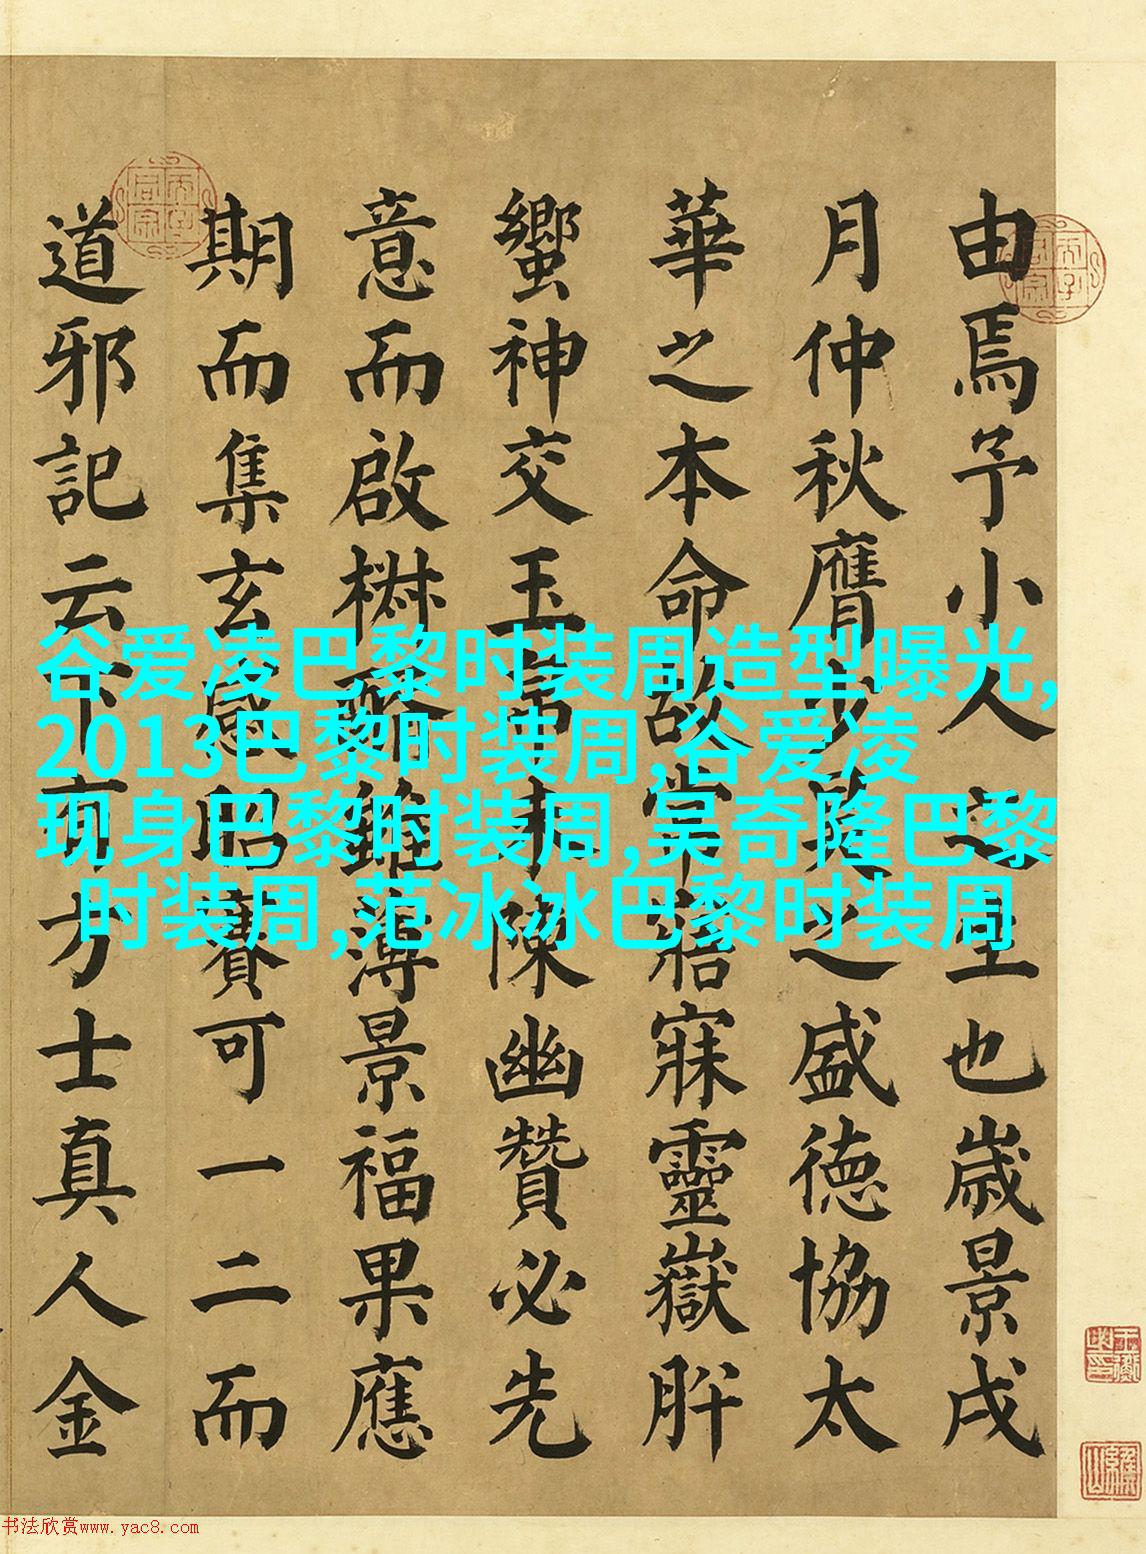 由焉予小人之生也歲景戌
月仲秋膺少昊之盛德協太
華之本命故常寤寐靈嶽肸
蠁神交玉帛未陳幽贊必先
意而啟椒醑雖薄景福果應
期而集玄感昭賽可一二而
道邪記云下有方士真人金
谷爱凌巴黎时装周造型曝光,
2013巴黎时装周,谷爱凌
现身巴黎时装周,吴奇隆巴黎
时装周,范冰冰巴黎时装周
书法欣赏www.yac8.com